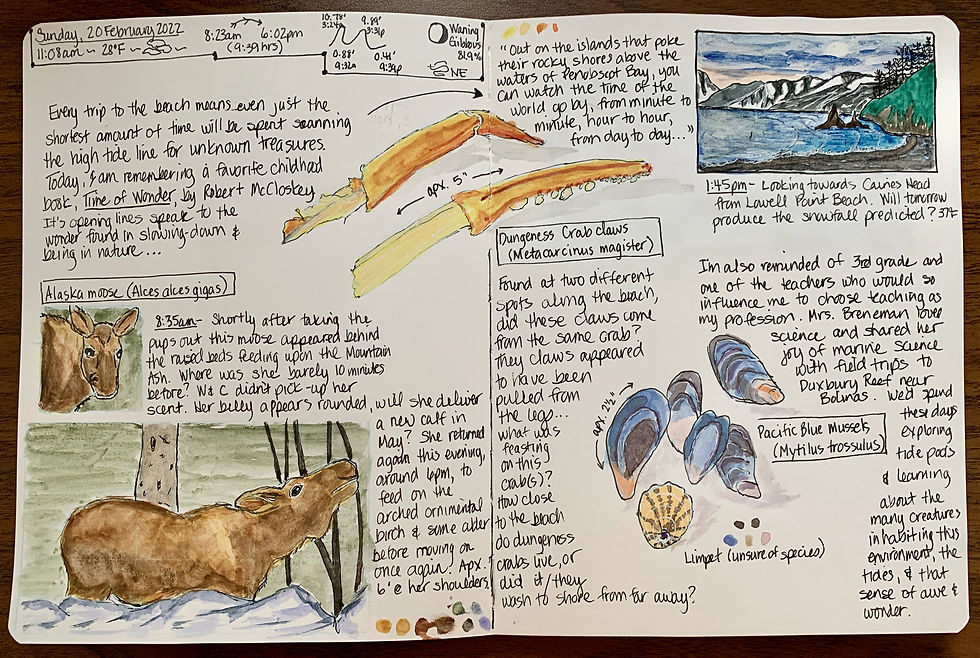 Sunday, 20 February 2022
11:08am ~ 28°F ~
8:23am 6:02pm
(9:39 hrs)
10.78' 9.89'
3:24a 3:31p
0.88' 0.41'
9:32a 9:39p
Waning
Gibbous
81.9%
NE
Every trip to the beach means even just the
shortest amount of time will be spent scanning
the high tide line for unknown treasures.
Today, I am remembering a favorite childhood
book, Time of Wonder, by Robert McCloskey.
It's opening lines speak to the
wonder found in slowing-down &
being in nature...
"Out on the islands that poke
their rocky shores above the
waters of Penobscot Bay, you
can watch the time of the
world go by, from minute to
minute, hour to hour,
from day to day..."
apx. 5"
Alaska moose (Alces alces gigas)
8:35am - Shortly after taking the
pups out this moose appeared behind
the raised beds feeding upon the Mountain
Ash. Where was she barely 10 minutes
before? W & C didn't pick-up her
scent. Her belly appears rounded, will she deliver
a new calf in
May? She returned
again this evening,
around 6pm, to
feed on the
arched ornimental
birch & some alder
before moving on
once again! Apx.
6' @ her shoulders.
Dungeness Crab claws
(Metacarcinus magister)
Found at two different
spots along the beach,
did these claws come
from the same crab?
They claws appeared
to have been
pulled from
the legs...
what was
feasting
on this
crab(s)?
How close
to the beach
do dungeness
crabs live, or
did it/they
wash to shore from far away?
1:45pm - Looking towards Caines Head
from Lowell Point Beach. Will tomorrow
produce the snowfall predicted? 37°F
I'm also reminded of 3rd grade and
one of the teachers who would so
influence me to choose teaching as
my profession. Mrs. Breneman loved
science and shared her
joy of marine science
with field trips to
Duxbury Reef near
Bolinas. We'd spend
these days
exploring
tide pools
& learning
about the
many creatures
inhabiting this
environment, the
tides, & that
sense of awe &
wonder.
apx. 2½"
Pacific Blue Mussels
(Mytilus trossulus)
Limpet (unsure of species)